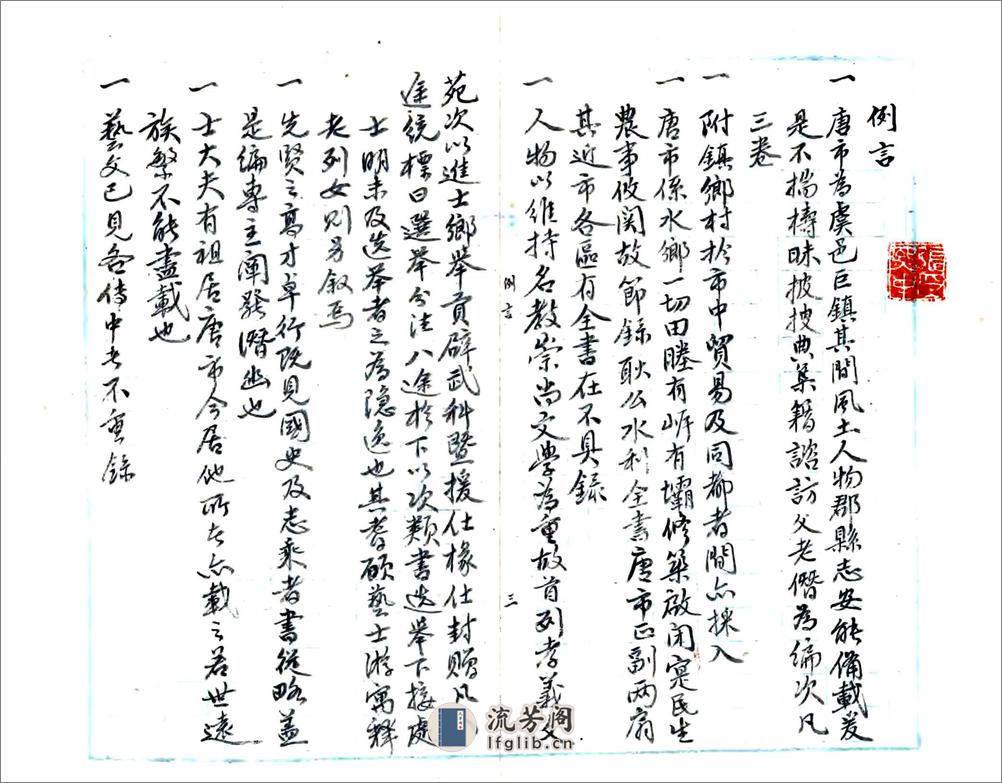 例言
一唐市為虞邑巨鎮其間風土人物郡縣志安能備載爰
是不揣檮昧披典籍諮訪父老僭為編次凡
三卷
一附鎮鄉村於市中貿易及同都者間亦採入
一唐市係水鄉一切田塍有岍有壩修築啟閉寔民生
農事攸関故節錄耿公水利全書唐市正副兩扇
其近市各區有全書在不具錄
一人物以維持名教崇尚文學為重故首列孝義文
例言
三
苑次以進士鄉舉貢辟武科暨援仕椽仕封贈凡
途統標曰選舉分注八途於下以次類書選舉下接處
士明未及选举者之為隐逸也其耆碩藝士游寓釋
老列女則另叙焉
一先賢之高才卓行既見國史及志乘者書從略盖
是编專主阐發潛幽也
一士大夫有祖居唐市今居他所者亦載之若世遠
族繁不能盡載也
一藝文已見各傳中者不重錄
流芳閣
lfglib.cn